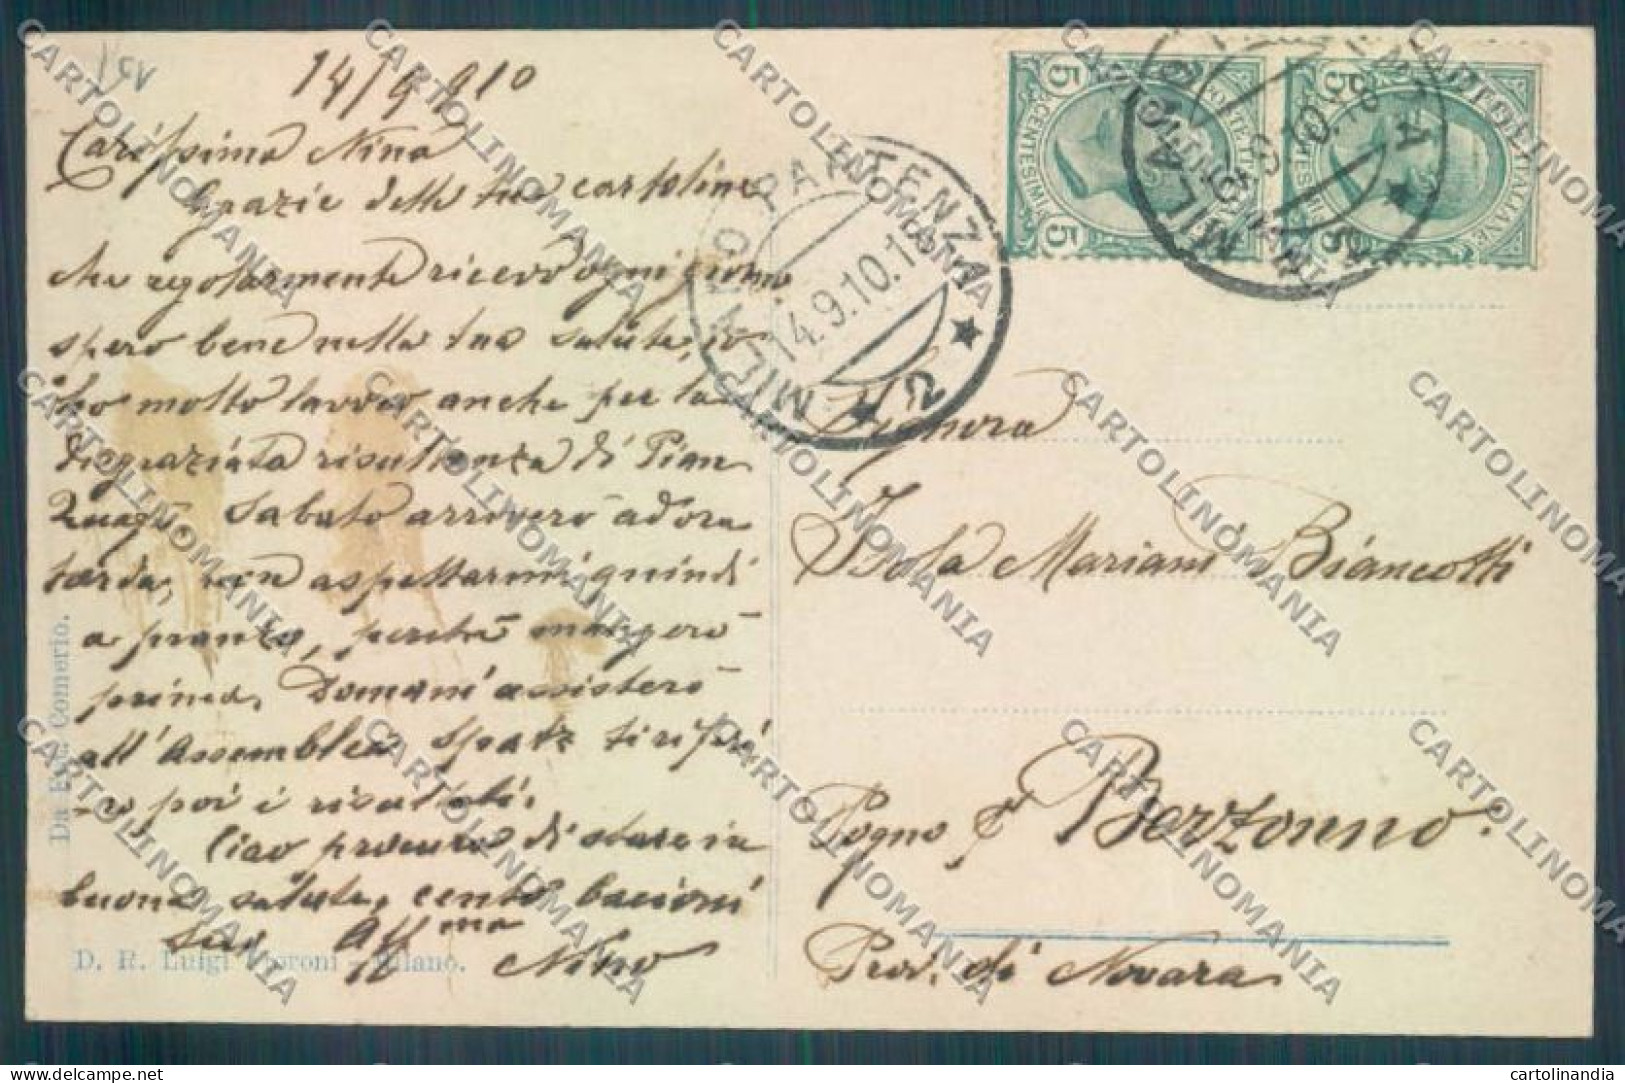 14/9 910
Carissima Nina
Grazie delle tue cartoline
che regolarmente ricevo ogni giorno
spero bene nella tua salute, io
ho molto lavoro anche per la
disgraziata risultanza di Pian
Sabato arriverò ad ora
tarda, non aspettarmi quindi
a pranzo, perchè mangerò
prima. Domani assisterò
all'Assemblea
poi i risultati.
Ciao procura di stare in
buona salute, cento bacioni
Aff.mo
Nino
Da Fot. Comerio.
D. R. Luigi Moroni - Milano.
MILANO PARTENZA
14.9.10.18
MILANO
5 CENTESIMI 5
POSTE ITALIANE
Signora
Isola Mariani Biancotti
Pogno Berzonno.
Prov. di Novara
CARTOLINOMANIA
cartolinandia
delcampe.net